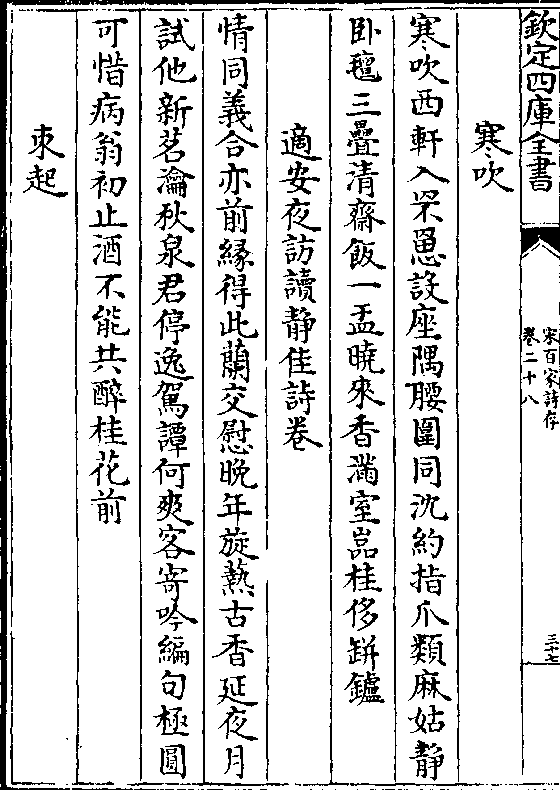 欽定四庫全書
宋百家詩存
卷二十八
三十七
寒吹
寒吹西軒入罘罳設座隅腰圍同沈約指爪類麻姑靜
臥氊三疊清齋飯一盂曉來香滿室嵓桂侈缾鑪
適安夜訪讀靜佳詩卷
情同義合亦前緣得此蘭交慰晚年旋爇古香延夜月
試他新茗瀹秋泉君停逸駕譚何爽客寄吟編句極圓
可惜病翁初止酒不能共醉桂花前
夙起